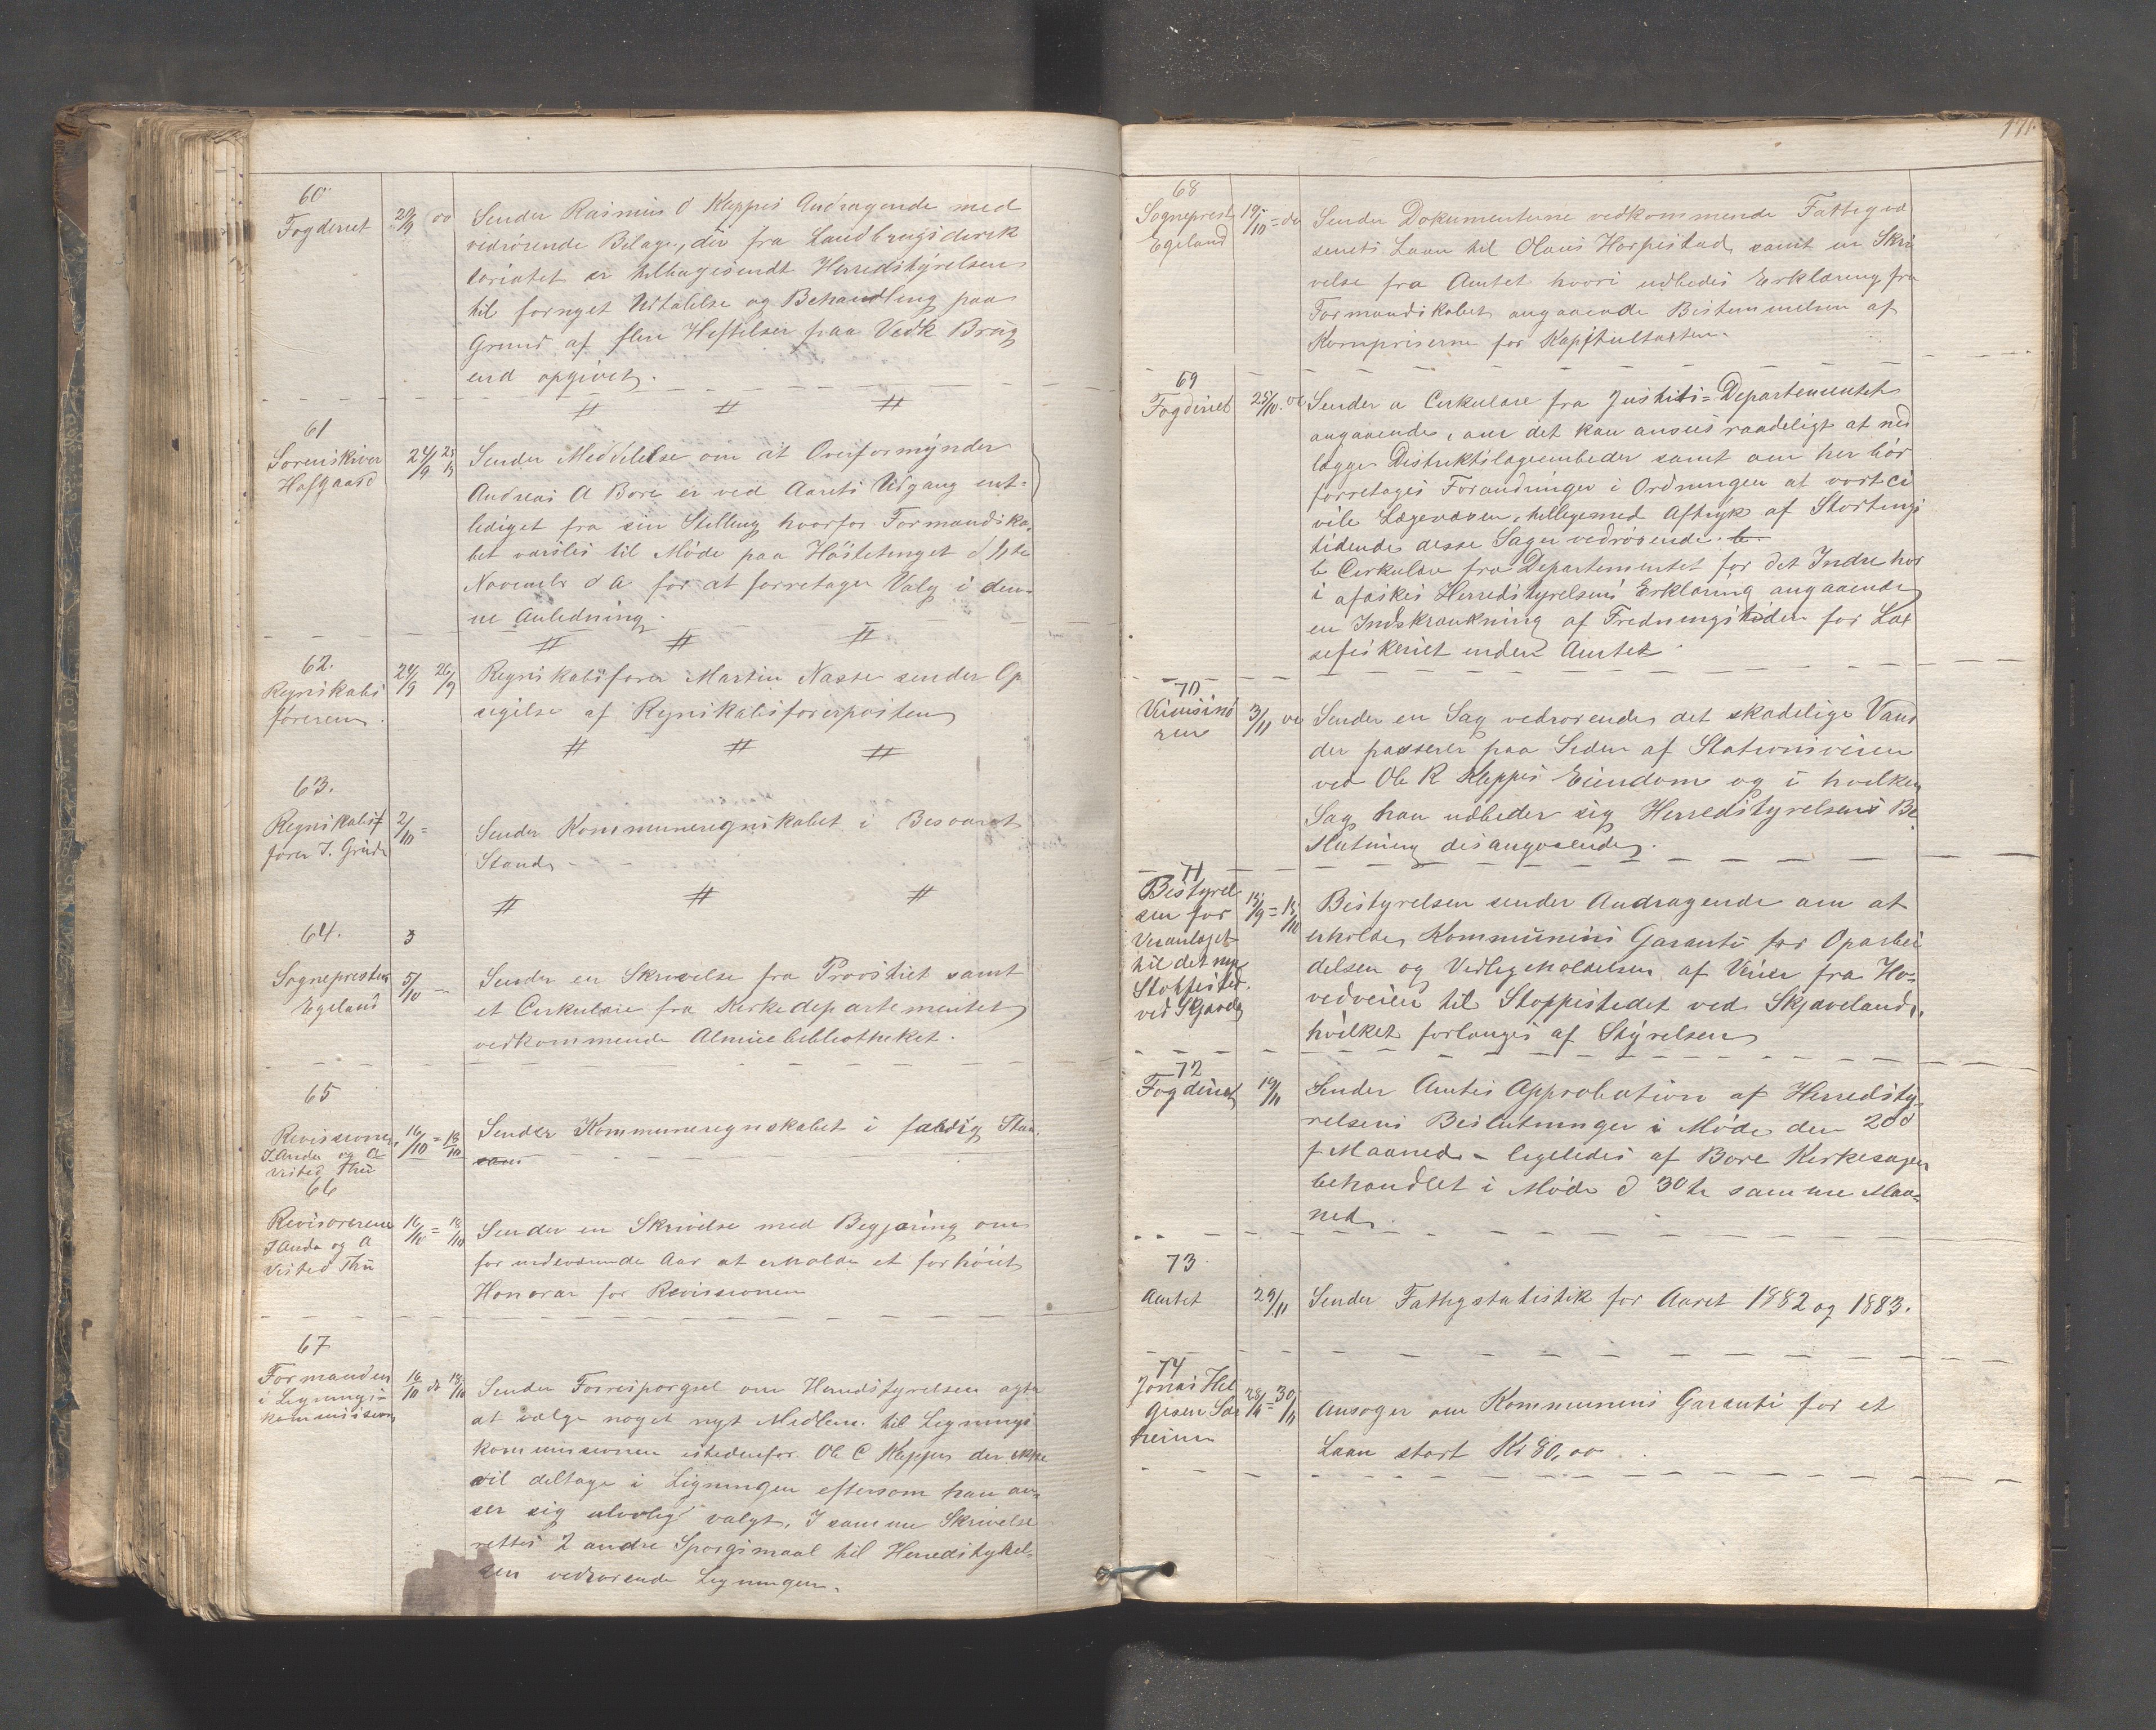 60
Fogderiet
20/9 do
Sender Rasmus O Kleppes Andragende med
vedrörende Bilage, der fra Landbrugsdirek
toriatet er tilbagesendt Herredstyrelsen
til fornyet Udtalelse og Behandling paa
Grund af flere Heftelser paa Vedk Brug
end opgivet.
61
Sorenskriver
Hofgaard
24/9 25/9
Sender Meddelelse om at Overformynder
Andreas A Bore er ved Aarets Udgang ent-
lediget fra sin Stilling hvorfor Formandska
bet varsles til Möde paa Hösttinget d 1ste
November d A for at forretage Valg i den-
ne Anledning.
62.
Regnskabs
föreren
24/9 26/9
Regnskabsförer Martin Næsse sender Op
sigelse af Regnskabsförerposten
63.
Regnskabsf
förer T. Grude
2/10 =
Sender Kommuneregnskabet i Besvaret
Stand
64.
3
Sognepresten
Egeland
5/10 -
Sender en Skrivelse fra Provstiet samt
et Cirkulære fra Kirkedepartementet
vedkommende Almuebibliotheket.
65
Revisorerne
J Anda og A
Visted Thu
16/10 = 18/10
Sender Kommuneregnskabet i færdig Stan
66
Revisorerne
J Anda og A
Visted Thu
16/10 = 18/10
Sender en Skrivelse med Begjæring om
for indeværende Aar at erholde et forhöiet
Honorar for Revissionen
67
Formanden
i Lignings-
kommission
16/10 do 18/10
Sender Forrespörgsel om Herredstyrelsen agter
at vælge noget nyt Medlem til Lignings
kommissionen istedenfor Ole C Kleppe der ikke
vil deltage i Ligningen eftersom han an-
ser sig ulovlig valgt. I samme Skrivelse
rettes 2 andre Spörgsmaal til Herredstyrel-
sen vedrörende Ligningen.
171.
68
Sogneprest
Egeland
19/10 = do
Sender Dokumenterne vedkommende Fattigvæ
senets Laan til Olaus Horpestad samt en Skri
velse fra Amtet hvori udbedes Erklæring fra
Formandskabet angaaende Bestemmelsen af
Kornpriserne for Kapitultaxten.
69
Fogderiet
25/10 do
Sender a Cirkulære fra Justiti=Departementet
angaaende, om det kan ansees raadeligt at ned
lægge Distriktslægeembeder samt om her bör
forretages Forandringer i Ordningen at vort ci
vile Lægevæsen, tilligemed Aftryk af Stortings
tidende desse Sager vedrörende.
b Cirkulære fra Departementet for det Indre hvor
i afæskes Herredstyrelsens Erklæring angaaende
en Indskrænkning af Fredningstiden for Lax
sefiskeriet inden Amtet
70
3/11 do
Sender en Sag vedrörende det skadelige Vand
der passerer paa Siden af Stationsveien
ved Ole R Kleppes Eiendom og i hvilken
Sag han udbeder sig Herredstyrelsens Be
slutning desangaaende.
71
Bestyrel
sen for
Veianlæget
til det nye
Stoppested
ved Skjævela
15/9 = 15/10
Bestyrelsen sender Andragende om at
erholde Kommunens Garanti for Oparbei
delsen og Vedligeholdelsen af Veien fra Ho-
vedveien til Stoppestedet ved Skjæveland,
hvilket forlanges af Styrelsen
72
Fogderiet
19/11
Sender Amtes Approbation af Herredsty-
relsens Beslutninger i Möde den 20d
f Maaned - ligeledes af Bore Kirkesagen
behandlet i Möde d 30te samme Maa-
ned.
73
Amtet
29/11
Sender Fattigstatistik for Aaret 1882 og 1883.
74
Jonas Hel
gesen Sær
heim
28/11 = 30/11
Ansöger om Kommunens Garanti for et
Laan stort Kr 80,00